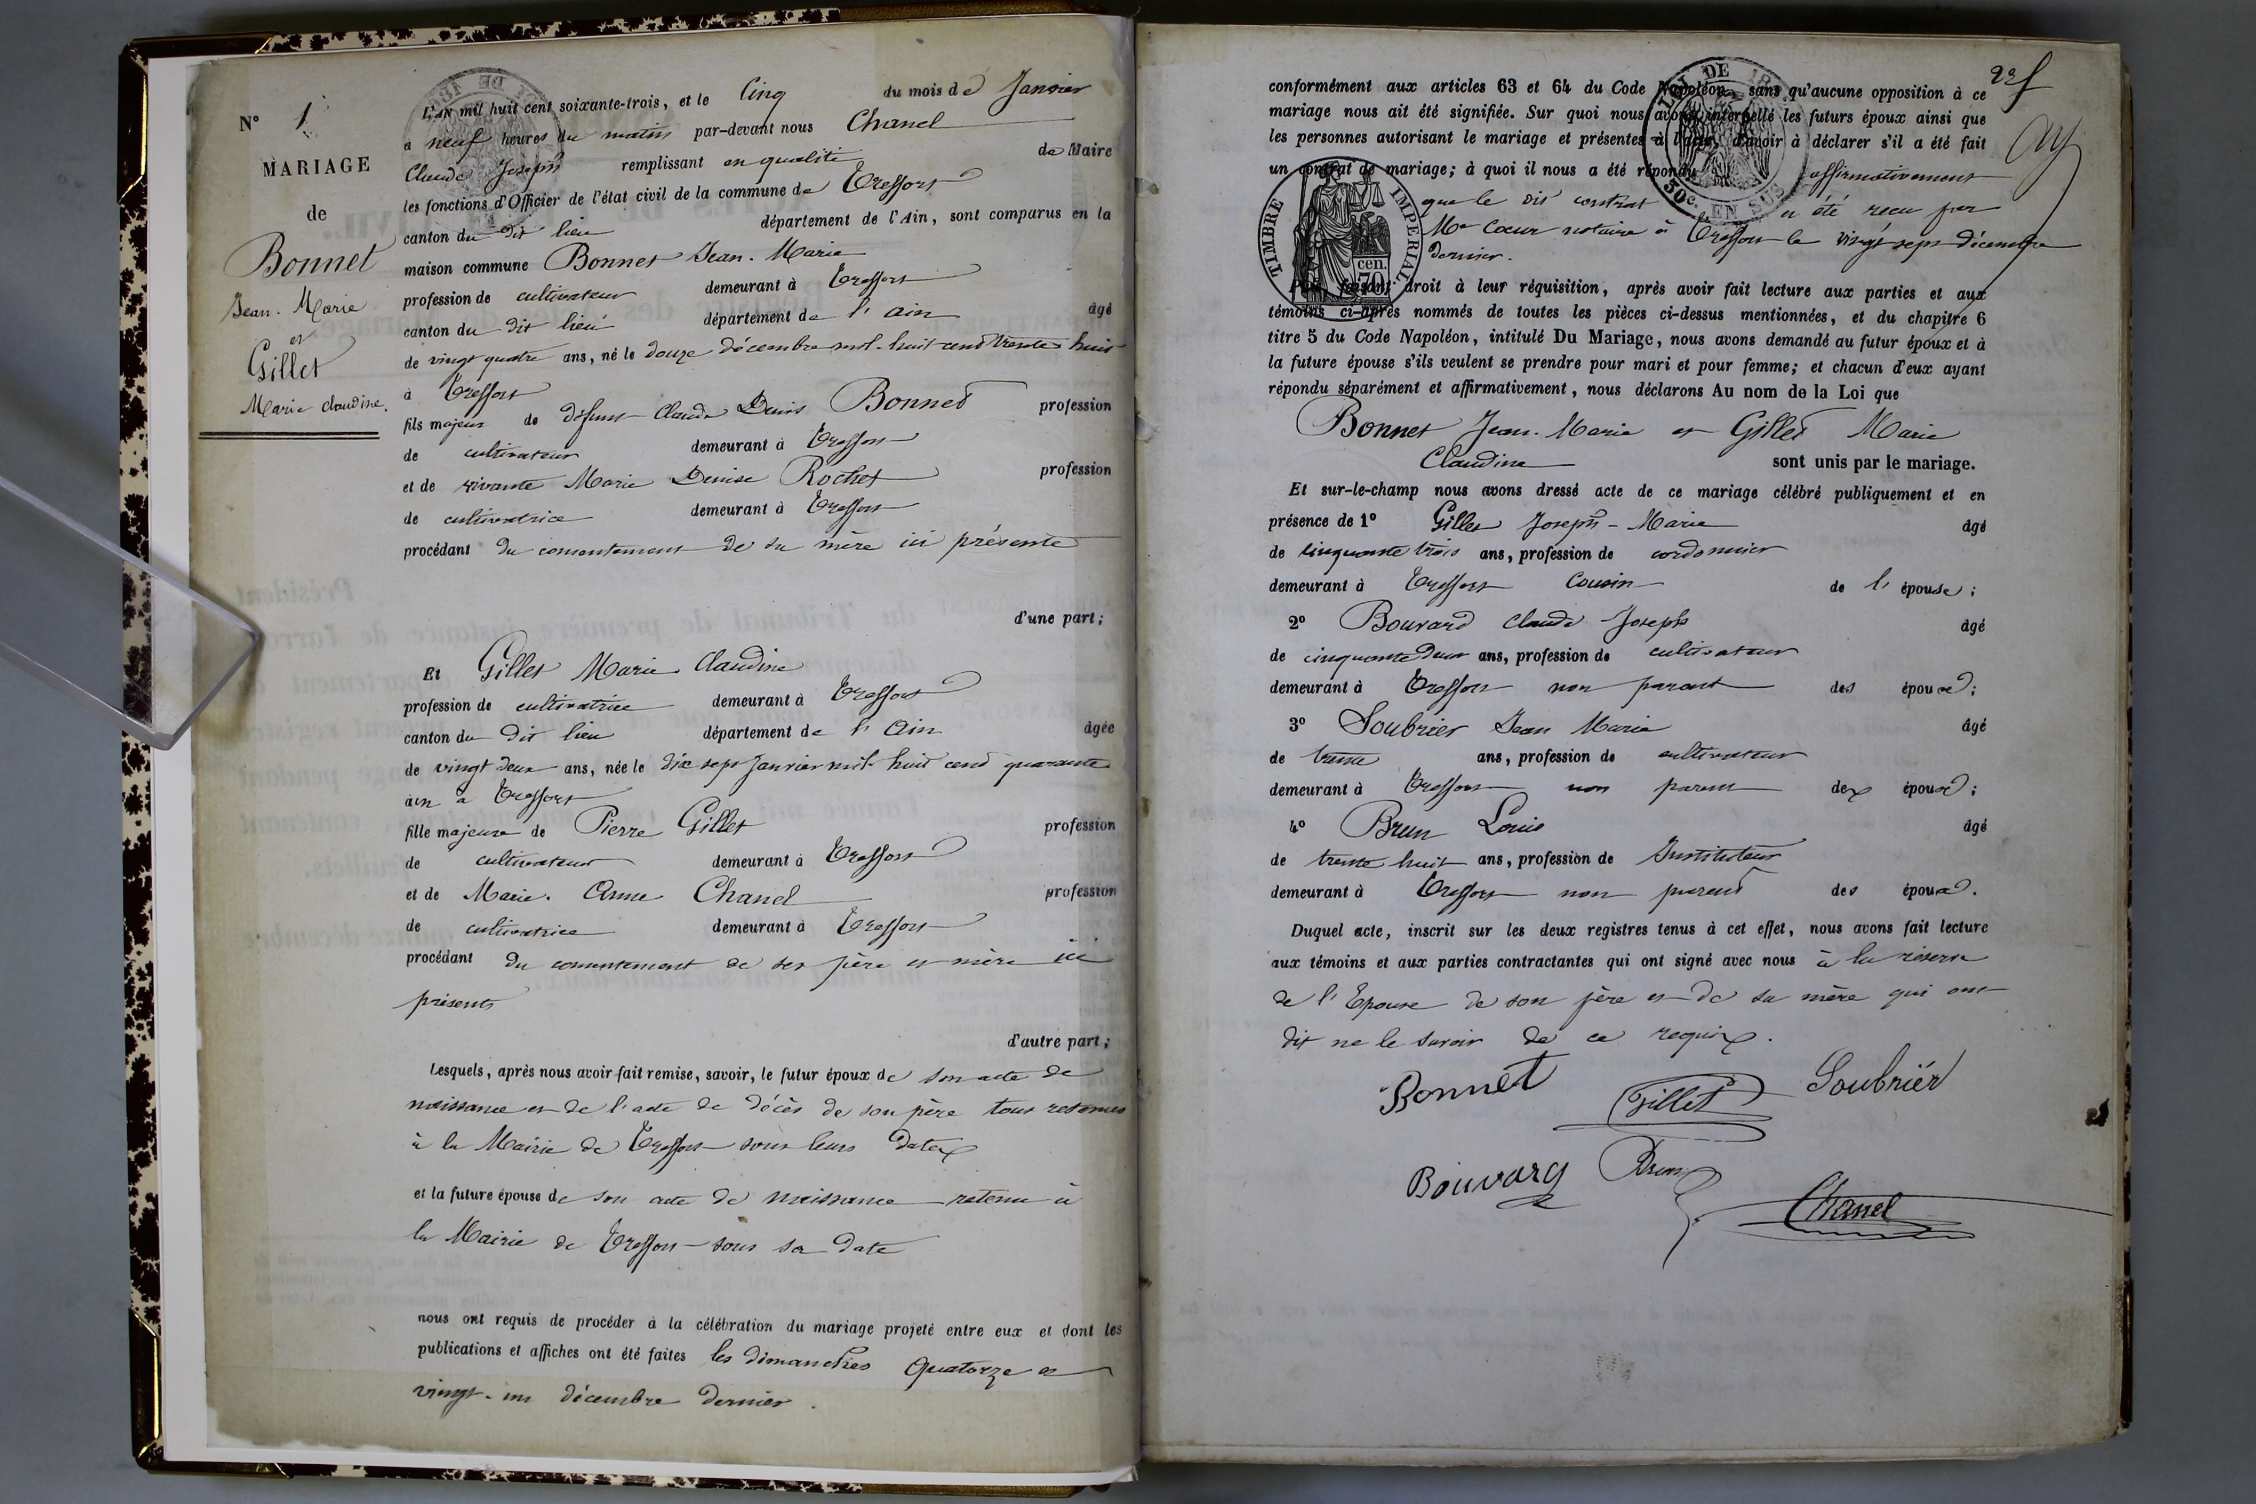 N° 1
MARIAGE
de
Bonnet
Jean-Marie
et
Gillet
Marie Claudine.
L'AN mil huit cent soixante-trois, et le Cinq du mois de Janvier
à neuf heures du matin par-devant nous Chanel
Claude Joseph remplissant en qualité de Maire
les fonctions d'Officier de l'état civil de la commune de Treffort
canton du dit lieu département de l'Ain, sont comparus en la
maison commune Bonnet Jean-Marie
profession de cultivateur demeurant à Treffort
canton du dit lieu département de l'Ain âgé
de vingt quatre ans, né le douze décembre mil-huit-cent trente huit
à Treffort
fils majeur de défunt Claude Denis Bonnet profession
de cultivateur demeurant à Treffort
et de vivante Marie Denise Rochet profession
de cultivatrice demeurant à Treffort
procédant du consentement de sa mère ici présente
d'une part;
Et Gillet Marie Claudine
profession de cultivatrice demeurant à Treffort
canton du dit lieu département de l'Ain âgée
de vingt deux ans, née le dix sept Janvier mil huit cent quarante
un à Treffort
fille majeure de Pierre Gillet profession
de cultivateur demeurant à Treffort
et de Marie-Anne Chanel profession
de cultivatrice demeurant à Treffort
procédant du consentement de ses père et mère ici
présents
d'autre part;
Lesquels, après nous avoir fait remise, savoir, le futur époux de son acte de
naissance et de l'acte de décès de son père tous retenus
à la Mairie de Treffort sous leurs dates
et la future épouse de son acte de naissance retenu à
la Mairie de Treffort sous sa date
nous ont requis de procéder à la célébration du mariage projeté entre eux et dont les
publications et affiches ont été faites les dimanches Quatorze et
vingt-un décembre dernier.
conformément aux articles 63 et 64 du Code Napoléon, sans qu'aucune opposition à ce
mariage nous ait été signifiée. Sur quoi nous avons interpellé les futurs époux ainsi que
les personnes autorisant le mariage et présentes à l'acte, d'avoir à déclarer s'il a été fait
un contrat de mariage; à quoi il nous a été répondu affirmativement
que le dit contrat a été reçu par
Me Cœur notaire à Treffort le vingt sept décembre
dernier.
TIMBRE IMPERIAL
70 cen.
50c. EN SUS
Puis, faisant droit à leur réquisition, après avoir fait lecture aux parties et aux
témoins ci-après nommés de toutes les pièces ci-dessus mentionnées, et du chapitre 6
titre 5 du Code Napoléon, intitulé Du Mariage, nous avons demandé au futur époux et à
la future épouse s'ils veulent se prendre pour mari et pour femme; et chacun d'eux ayant
répondu séparément et affirmativement, nous déclarons Au nom de la Loi que
Bonnet Jean-Marie et Gillet Marie
Claudine sont unis par le mariage.
Et sur-le-champ nous avons dressé acte de ce mariage célébré publiquement et en
présence de 1° Gillet Joseph-Marie âgé
de cinquante trois ans, profession de cordonnier
demeurant à Treffort Cousin de l'épouse;
2° Bouvard Claude Joseph âgé
de cinquante deux ans, profession de cultivateur
demeurant à Treffort non parent des époux;
3° Soubrier Jean Marie âgé
de trente ans, profession de cultivateur
demeurant à Treffort non parent des époux;
4° Brun Louis âgé
de trente huit ans, profession de Instituteur
demeurant à Treffort non parent des époux.
Duquel acte, inscrit sur les deux registres tenus à cet effet, nous avons fait lecture
aux témoins et aux parties contractantes qui ont signé avec nous à la réserve
de l'Epouse de son père et de sa mère qui ont
dit ne le savoir de ce requis.
Bonnet Gillet Soubrier
Bouvard Brun Chanel